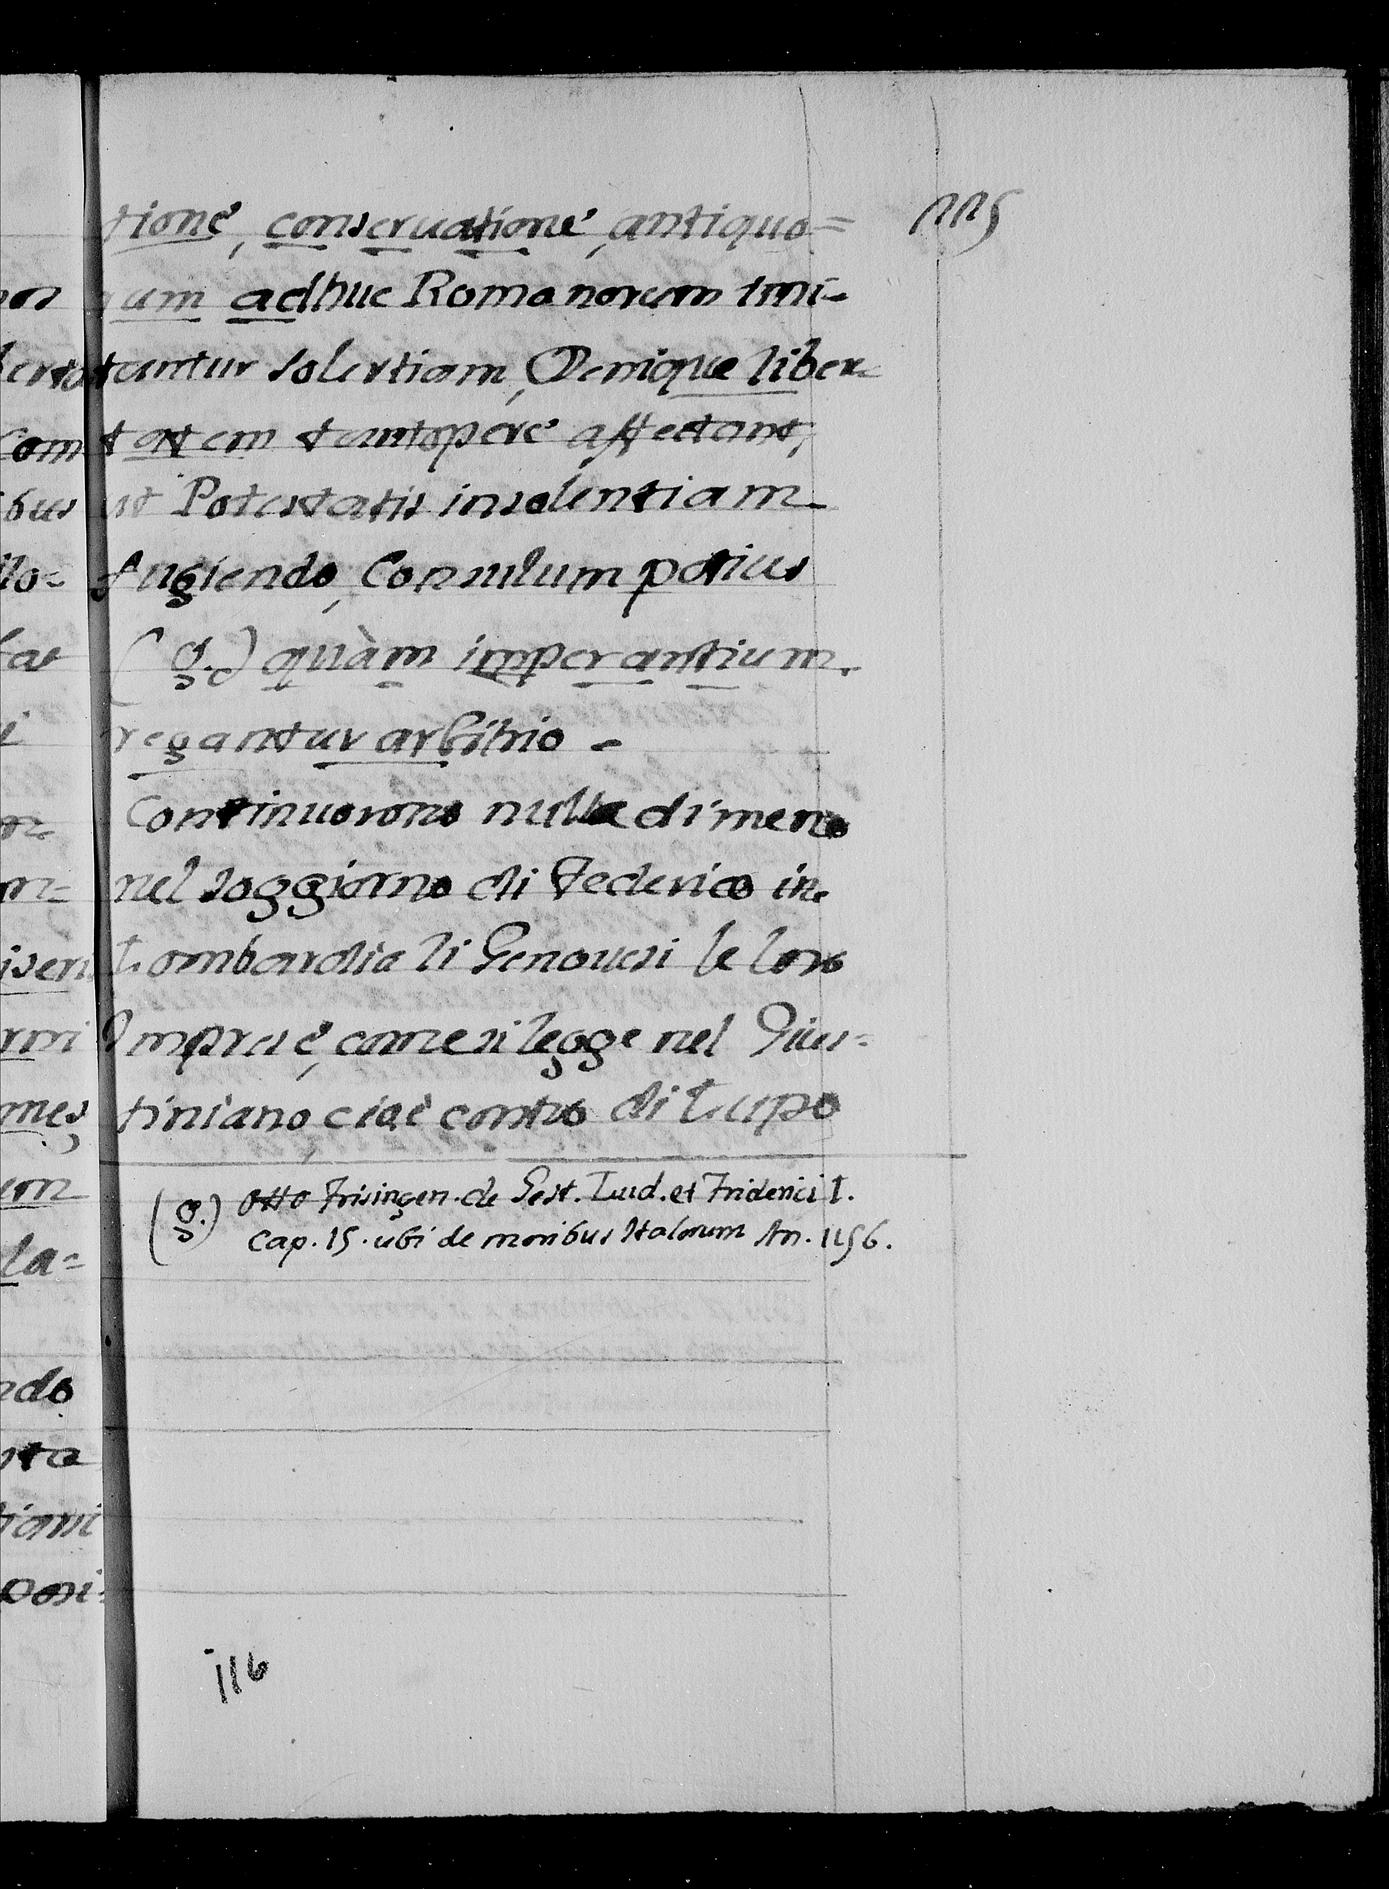 115
tione, conseruatione, antiquo=
rum adhuc Romanorum imi-
tantur solertiam, Denique liber=
tatem tantopere affectant,
ut Potestatis insolentiam
fugiendo, Consulum potius
(g.) quàm imperantium
regantur arbitrio -
Continuorono nulladimeno
nel soggiorno di Federico in
Lombardia li Genouesi le loro
Imprese, come si legge nel Gius=
tiniano, cioè contro di Lupo
(g.) Otto Frisingen. de Gest. Lud. et Friderici I.
Cap. 15. ubi de moribus Italorum An. 1156.
116